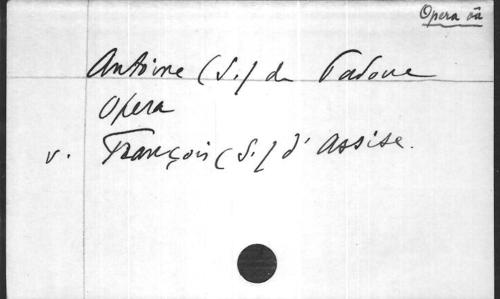 Opera
Antoine (S./ de Padoue
Opera
v. François (S./ d'Assise.